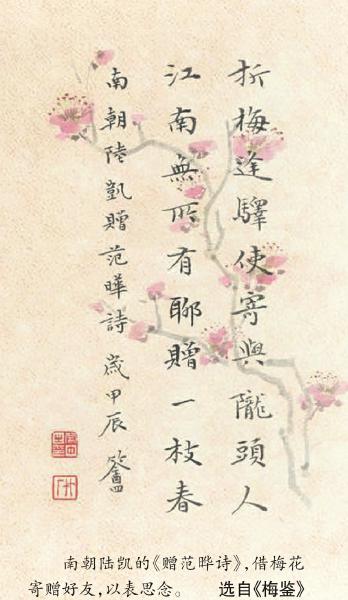 折梅逢驛使寄與隴頭人
江南無所有聊贈一枝春
南朝陸凱贈范曄詩 歲甲辰
南朝陆凯的《赠范晔诗》，借梅花
寄赠好友，以表思念。 选自《梅鉴》